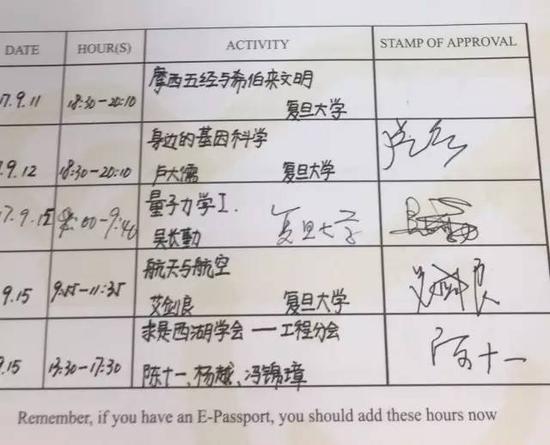 DATE HOUR(S) ACTIVITY STAMP OF APPROVAL
摩西五经与希伯来文明
17.9.11 18:30-20:10 复旦大学
身边的基因科学
7.9.12 18:30-20:10 卢大儒 复旦大学
量子力学I.
17.9.15 8:00-9:40 吴长勤 复旦大学
航天与航空
9.15 9:55-11:35 艾剑良 复旦大学
求是西湖学会 — 工程分会
9.15 13:30-17:30 陈十一、杨越、冯锦璋 陈十一
Remember, if you have an E-Passport, you should add these hours now